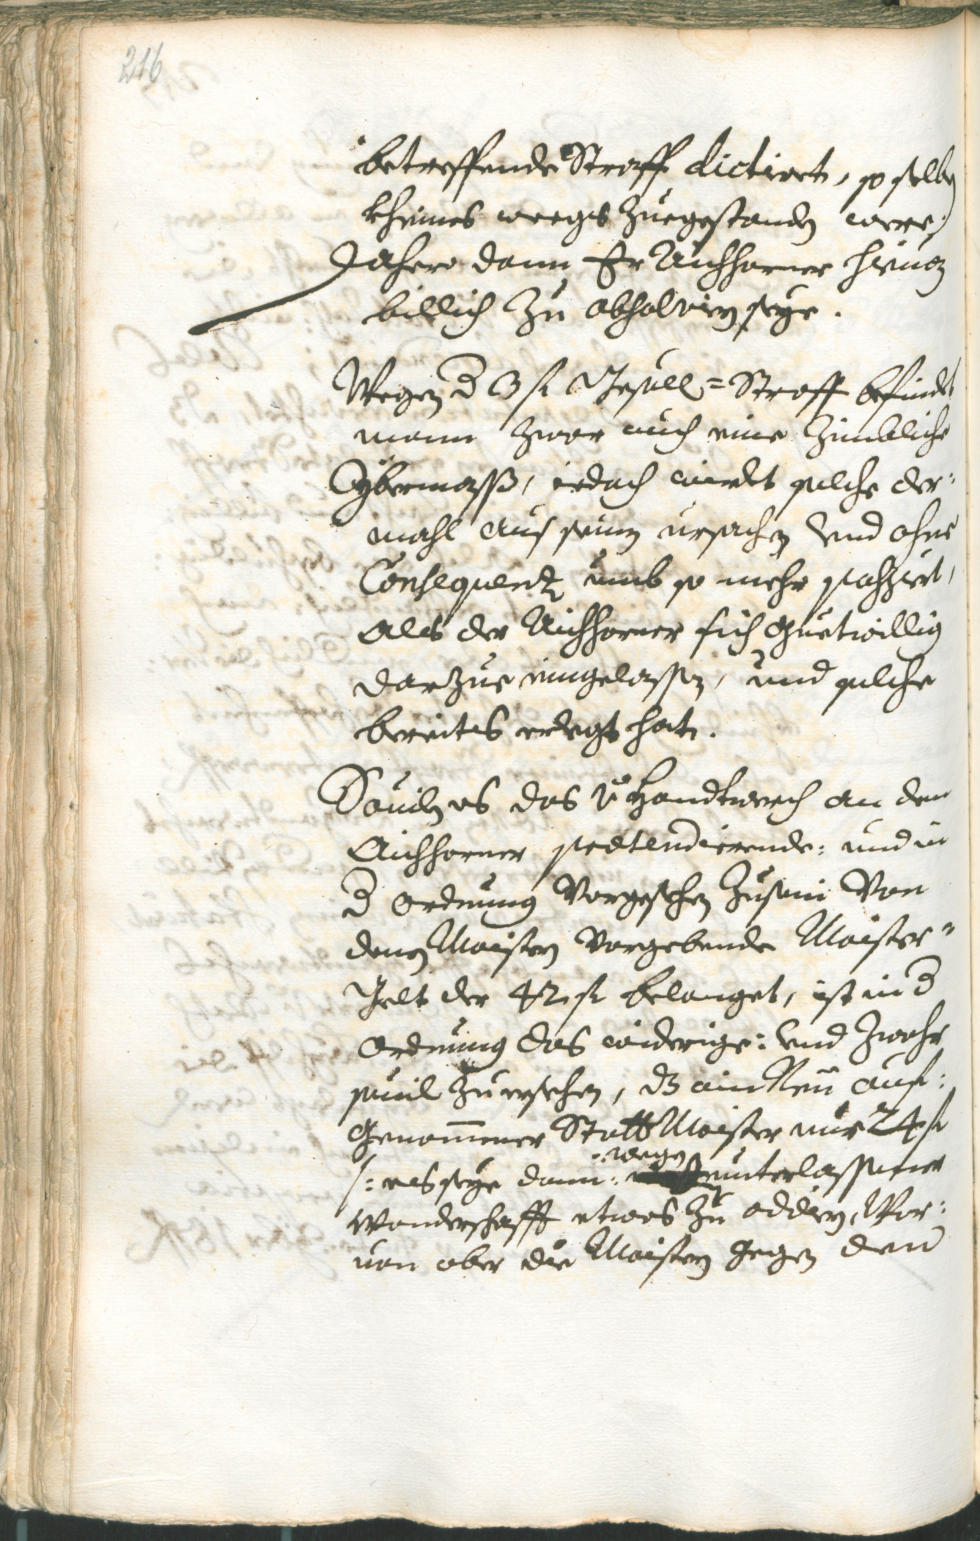 216
betreffende Straff dictirt, so selben
kheines weegs zuegestanden were,
Dahero dann Er Aichhorner hievon
billich zu absolvirn seye.
Wegen d 3 fl Gesell=Straff befindet
mann zwar auch eine zimbliche
Ybermaß, iedoch wirdt solche der=
mahl aus seinen ursachen vnd ohne
Consequenz umb so mehr passiert,
als der Aichhorner sich guetwillig
darzue eingelassen, und solche
bereits erlegt hat.
Souil es das Handtwerch an den
Aichhorner praetendierende: und in
d ordnung vorgesehen zusein von
denen Maistern vorgebende Maister=
Gelt der 42 fl belanget, ist in d
ordnung das widerige: vnd zwahr
souil zuersehen, dz ain Neu auf=
genommener Statt Maister nur 24 fl
/: es seye dann: wegen unterlassener
wanderschafft etwas zu addirn, Wor=
von aber die Maistern gegen den